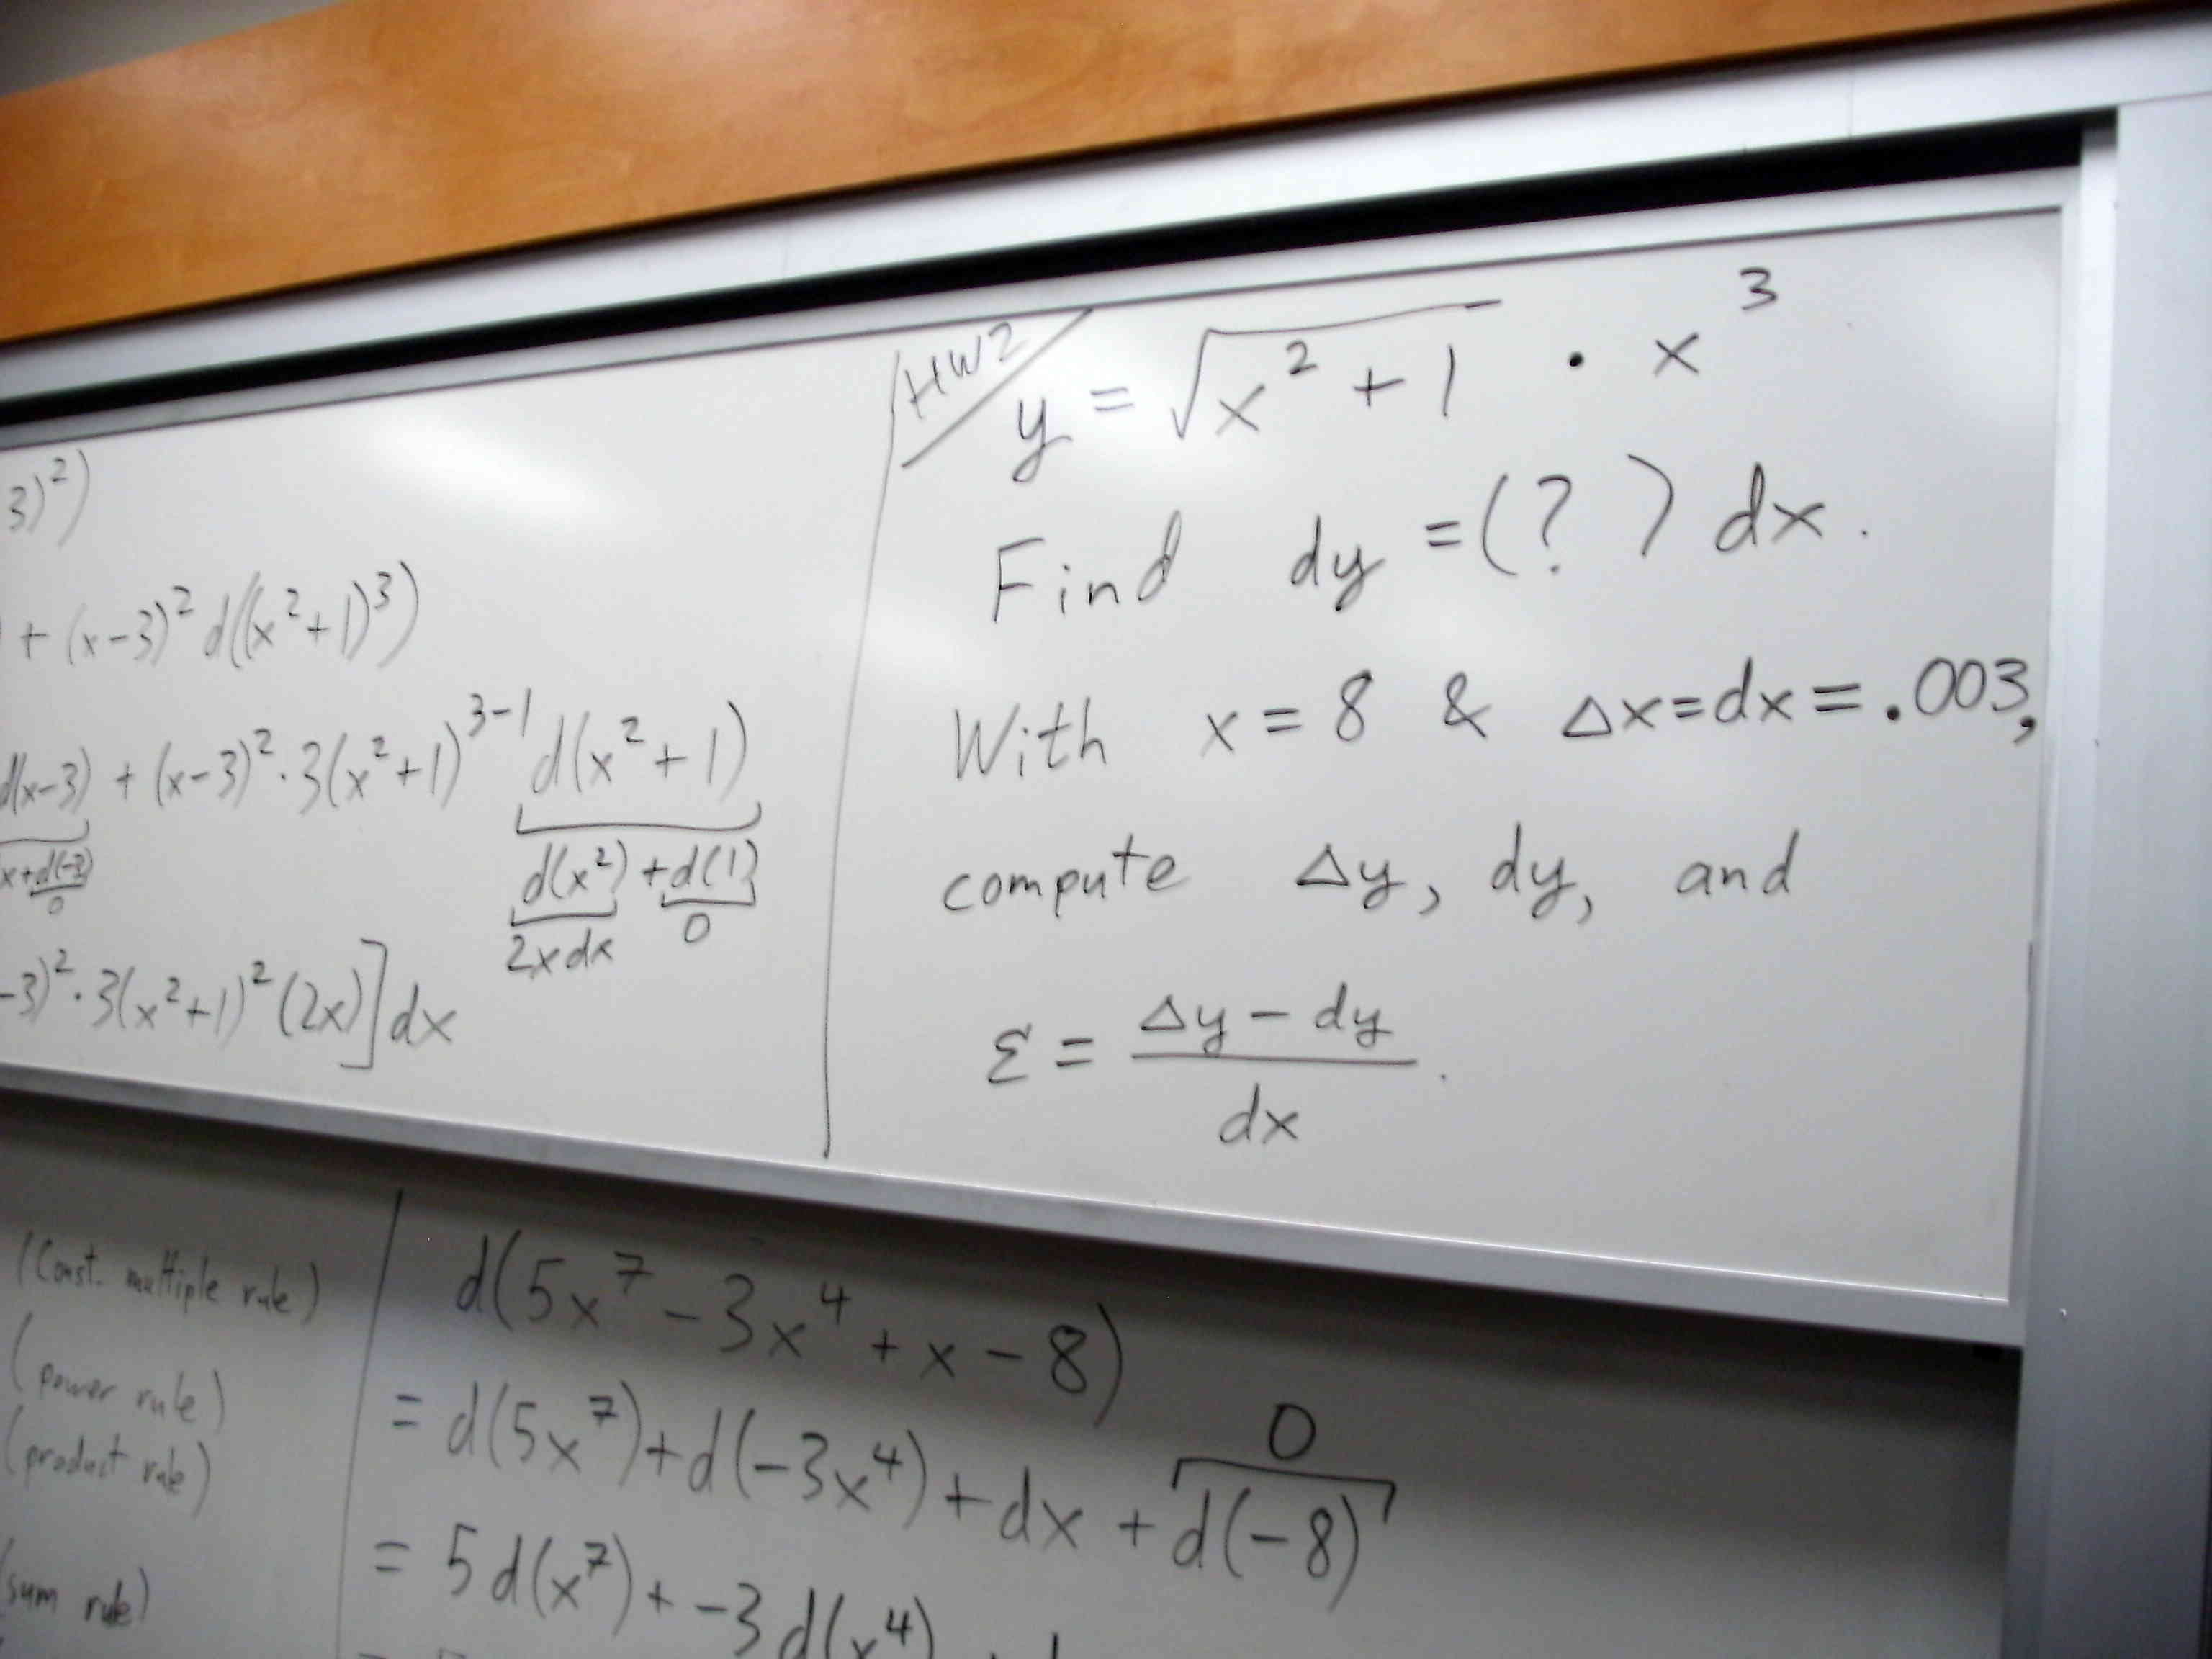 3)²)
+ (x-3)² d((x²+1)³)
d(x-3) + (x-3)² · 3(x²+1)³⁻¹ d(x²+1)
x+d(-3) d(x²) + d(1)
0 2xdx 0
-3)² · 3(x²+1)² (2x)] dx
HW2
y = √(x² + 1) · x³
Find dy = (? ) dx.
With x = 8 & Δx = dx = .003,
compute Δy, dy, and
ε = (Δy - dy)/dx.
(Const. multiple rule)
(power rule)
(product rule)
(sum rule)
d(5x⁷ - 3x⁴ + x - 8)
0
= d(5x⁷) + d(-3x⁴) + dx + d(-8)
= 5d(x⁷) + -3d(x⁴)